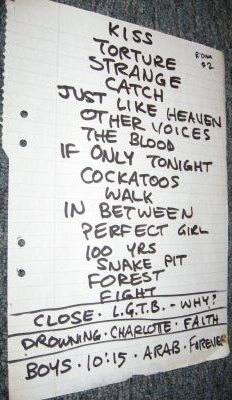 KISS
TORTURE
ROMA
#2
STRANGE
CATCH
JUST LIKE HEAVEN
OTHER VOICES
THE BLOOD
IF ONLY TONIGHT
COCKATOOS
WALK
IN BETWEEN
PERFECT GIRL
100 YRS
SNAKE PIT
FOREST
FIGHT
CLOSE · L.G.T.B. - WHY?
DROWNING · CHARLOTTE · FAITH
BOYS · 10:15 · ARAB · FOREVER